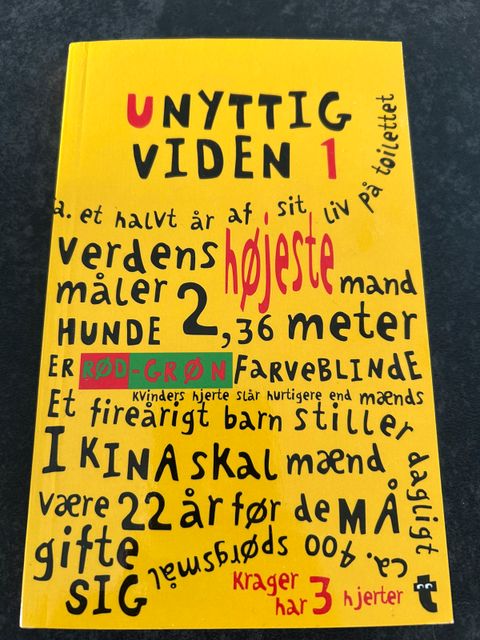 UNYTTIG
VIDEN 1
a. et halvt år af sit liv på toilettet
verdens højeste
måler 2,36 meter mand
HUNDE
ER RØD-GRØN FARVEBLINDE
Kvinders hjerte slår hurtigere end mænds
Et fireårigt barn stiller dagligt ca. 400 spørgsmål
I KINA skal mænd
være 22 år før de MÅ
gifte
SIG
Krager
har 3 hjerter
t